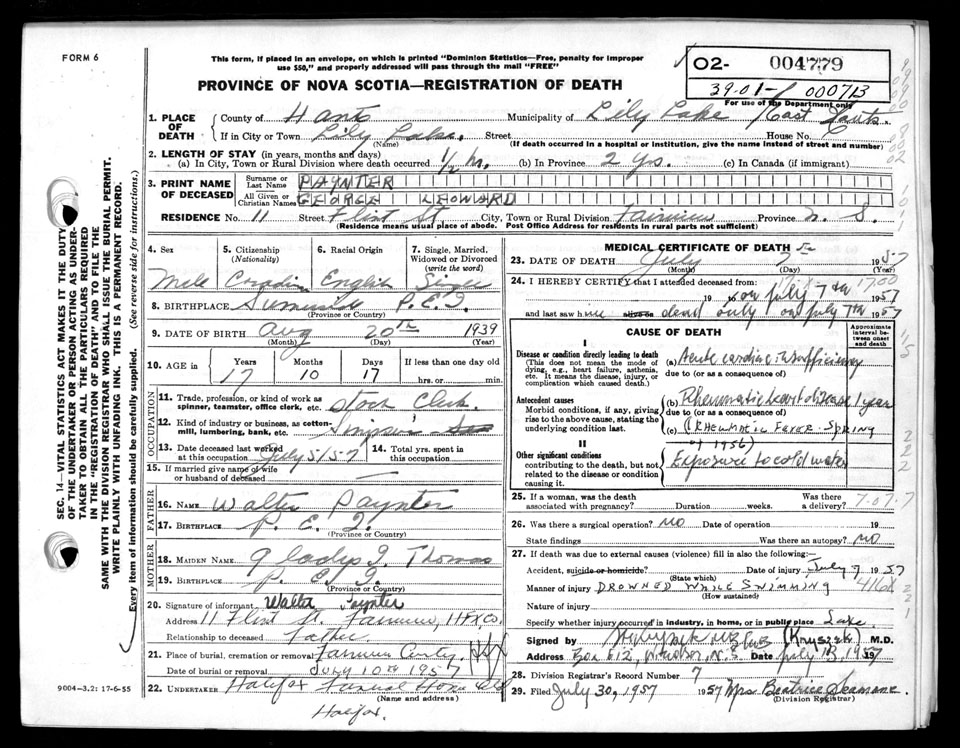 FORM 6
This form, if placed in an envelope, on which is printed "Dominion Statistics—Free, penalty for improper
use $50," and properly addressed will pass through the mail "FREE"
PROVINCE OF NOVA SCOTIA—REGISTRATION OF DEATH
O2- 004779
39-01-1 000713
For use of the Department only
1. PLACE OF DEATH County of Hants Municipality of Lily Lake East Hants
If in City or Town Lily Lake. Street House No.
(Name) (If death occurred in a hospital or institution, give the name instead of street and number)
2. LENGTH OF STAY (in years, months and days)
(a) In City, Town or Rural Division where death occurred ½ hr. (b) In Province 2 yrs. (c) In Canada (if immigrant)
3. PRINT NAME OF DECEASED Surname or Last Name PAYNTER
All Given or Christian Names GEORGE LEOWARD
RESIDENCE No. 11 Street Flint St. City, Town or Rural Division Fairview Province N. S.
(Residence means usual place of abode. Post Office Address for residents in rural parts not sufficient)
4. Sex 5. Citizenship (Nationality) 6. Racial Origin 7. Single, Married, Widowed or Divorced (write the word)
Male Canadian English Single
8. BIRTHPLACE P.E.I.
(Province or Country)
9. DATE OF BIRTH Aug 20th 1939
(Month) (Day) (Year)
10. AGE in Years Months Days If less than one day old
17 10 17 hrs. or min.
OCCUPATION
11. Trade, profession, or kind of work as spinner, teamster, office clerk, etc. Stock Clerk.
12. Kind of industry or business, as cotton-mill, lumbering, bank, etc. Simpson
13. Date deceased last worked at this occupation July 5/57 14. Total yrs. spent in this occupation
15. If married give name of wife or husband of deceased
FATHER
16. NAME Walter Paynter
17. BIRTHPLACE P. E. I.
(Province or Country)
MOTHER
18. MAIDEN NAME Gladys I. Thomas
19. BIRTHPLACE P. E. I.
(Province or Country)
20. Signature of informant Walter Paynter
Address 11 Flint St. Fairview, HFX, Co.
Relationship to deceased Father
21. Place of burial, cremation or removal Fairview Cemty. Hfx
Date of burial or removal JULY 10th 1957
22. UNDERTAKER Halifax Funeral Home Ltd
(Name and address)
Halifax.
9004-3.2: 17-6-55
MEDICAL CERTIFICATE OF DEATH
23. DATE OF DEATH July 7th 1957
(Month) (Day) (Year)
24. I HEREBY CERTIFY that I attended deceased from
19 to on July 7th 1957
and last saw h im alive on dead only on July 7th 1957
CAUSE OF DEATH
Approximate interval between onset and death
I
Disease or condition directly leading to death
(This does not mean the mode of dying, e.g., heart failure, asthenia, etc. It means the disease, injury, or complication which caused death.)
(a) Acute cardiac insufficiency
due to (or as a consequence of)
Antecedent causes
Morbid conditions, if any, giving rise to the above cause, stating the underlying condition last.
(b) Rheumatic heart disease 1 year
due to (or as a consequence of)
(c) (RHEUMATIC FEVER - SPRING
of 1956)
II
Other significant conditions
contributing to the death, but not related to the disease or condition causing it.
Exposure to cold water
25. If a woman, was the death associated with pregnancy? Duration weeks. Was there a delivery? 7-07-7
26. Was there a surgical operation? NO Date of operation 19
State findings Was there an autopsy? NO
27. If death was due to external causes (violence) fill in also the following:—
Accident, suicide or homicide? Date of injury July 7 1957
(State which)
Manner of injury DROWNED WHILE SWIMMING 416X
(How sustained)
Nature of injury
Specify whether injury occurred in industry, in home, or in public place Lake
Signed by (Kryszek) M.D.
Address Box 612, Windsor, N.S. Date July 13, 1957
28. Division Registrar's Record Number 7
29. Filed July 30, 1957 1957 Mrs Beatrice Seamane
(Division Registrar)
SEC. 14—VITAL STATISTICS ACT MAKES IT THE DUTY
OF THE UNDERTAKER OR PERSON ACTING AS UNDER-
TAKER "TO OBTAIN ALL THE PARTICULARS REQUIRED
IN THE "REGISTRATION OF DEATH" AND TO FILE THE
SAME WITH THE DIVISION REGISTRAR WHO SHALL ISSUE THE BURIAL PERMIT.
WRITE PLAINLY WITH UNFADING INK. THIS IS A PERMANENT RECORD.
Every item of information should be carefully supplied. (See reverse side for instructions.)